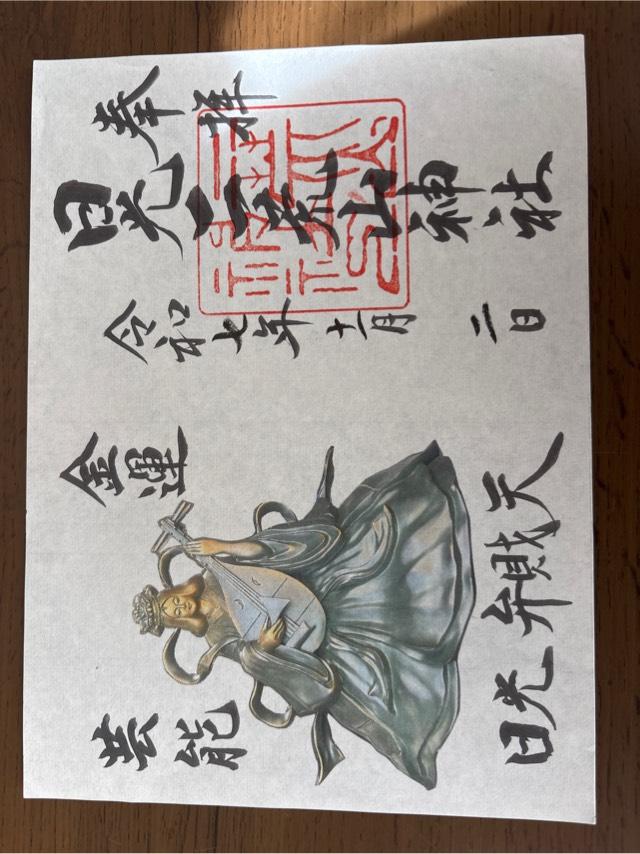 奉拝
日光二荒山神社
令和七年十一月二日
金運
芸能
日光弁財天